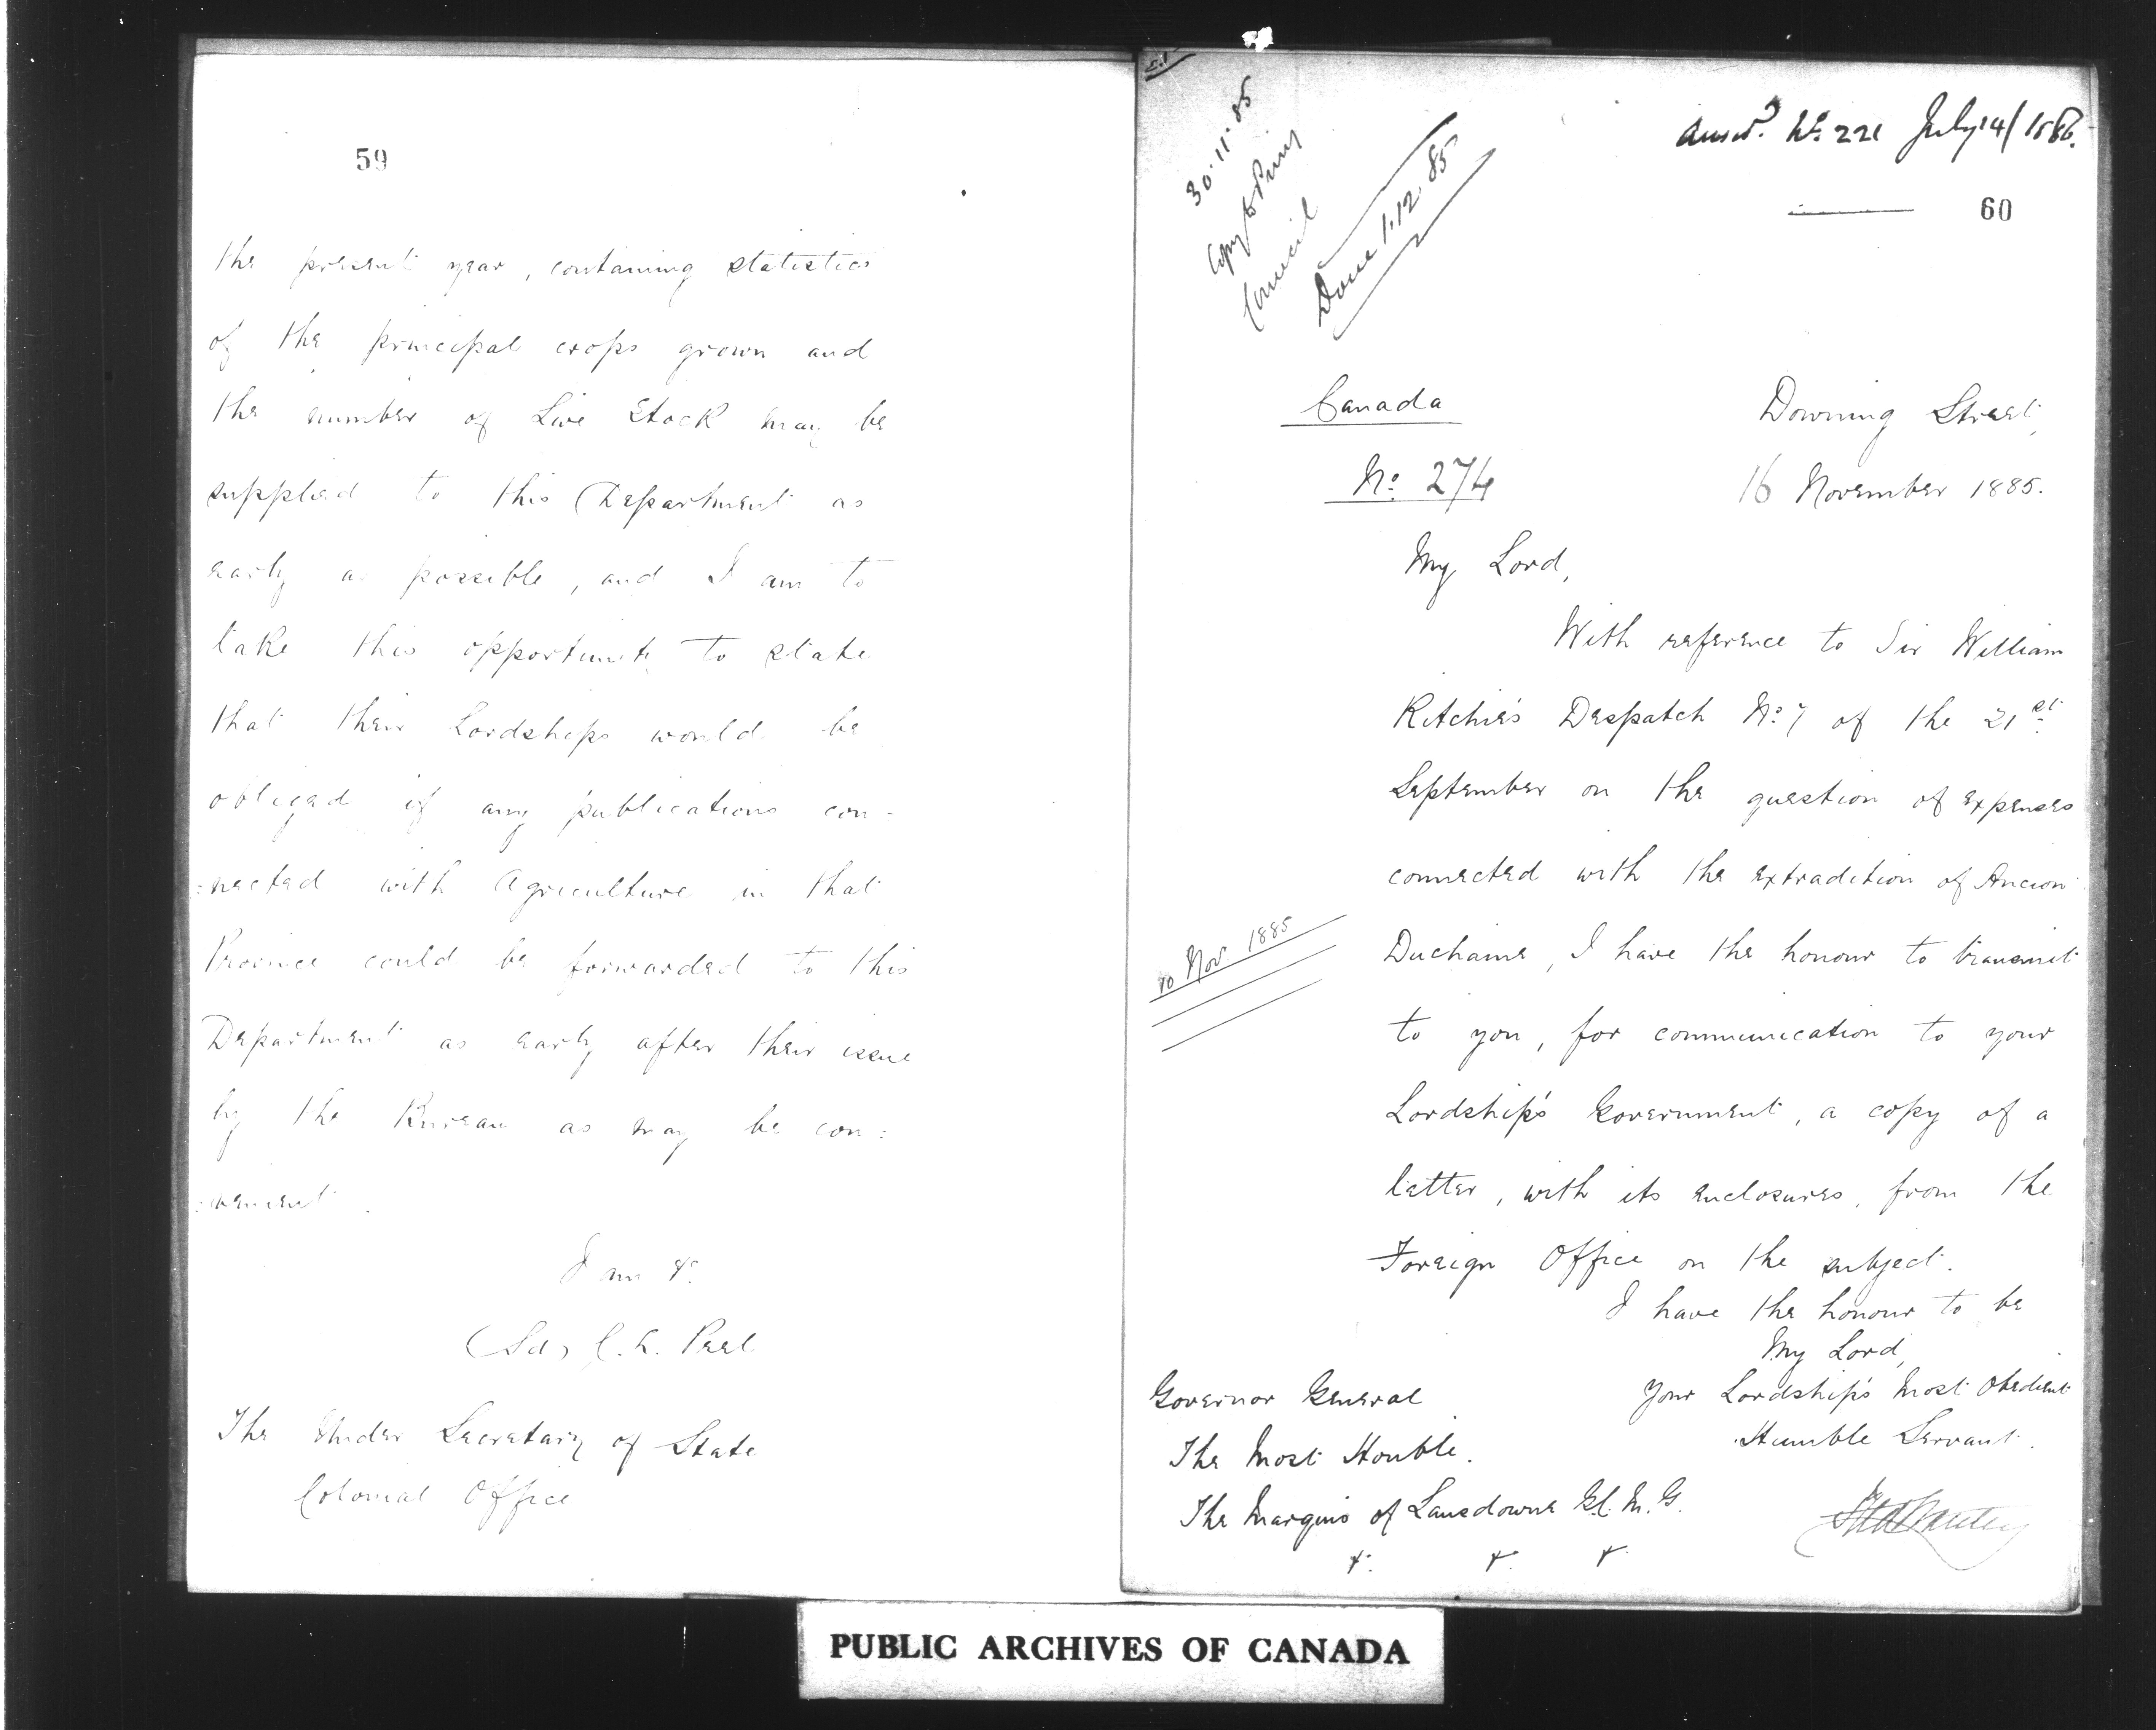 59
the present year, containing statistics
of the principal crops grown and
the number of Live Stock may be
supplied to this Department as
early as possible, and I am to
take this opportunity to state
that their Lordships would be
obliged if any publications con=
=nected with Agriculture in that
Province could be forwarded to this
Department as early after their issue
by the Bureau as may be con=
=venient.
I am &c
(Sd) C. L. Peel
The Under Secretary of State
Colonial Office
30.11.85
Copy to Privy
Council
Done 1.12.85
Answd. No. 221 July 14/1886.
60
Canada
No. 274
Downing Street,
16 November 1885.
My Lord,
With reference to Sir William
Ritchie's Despatch No. 7 of the 21st
September on the question of expenses
connected with the extradition of
I have the honour to transmit
to you, for communication to your
Lordship's Government, a copy of a
letter, with its enclosures, from the
Foreign Office on the subject.
10 Nov. 1885
I have the honour to be
My Lord,
Your Lordship's most obedient
Humble Servant.
Governor General
The Most Honble.
The Marquis of Lansdowne G.C.M.G.
&c. &c. &c.
PUBLIC ARCHIVES OF CANADA